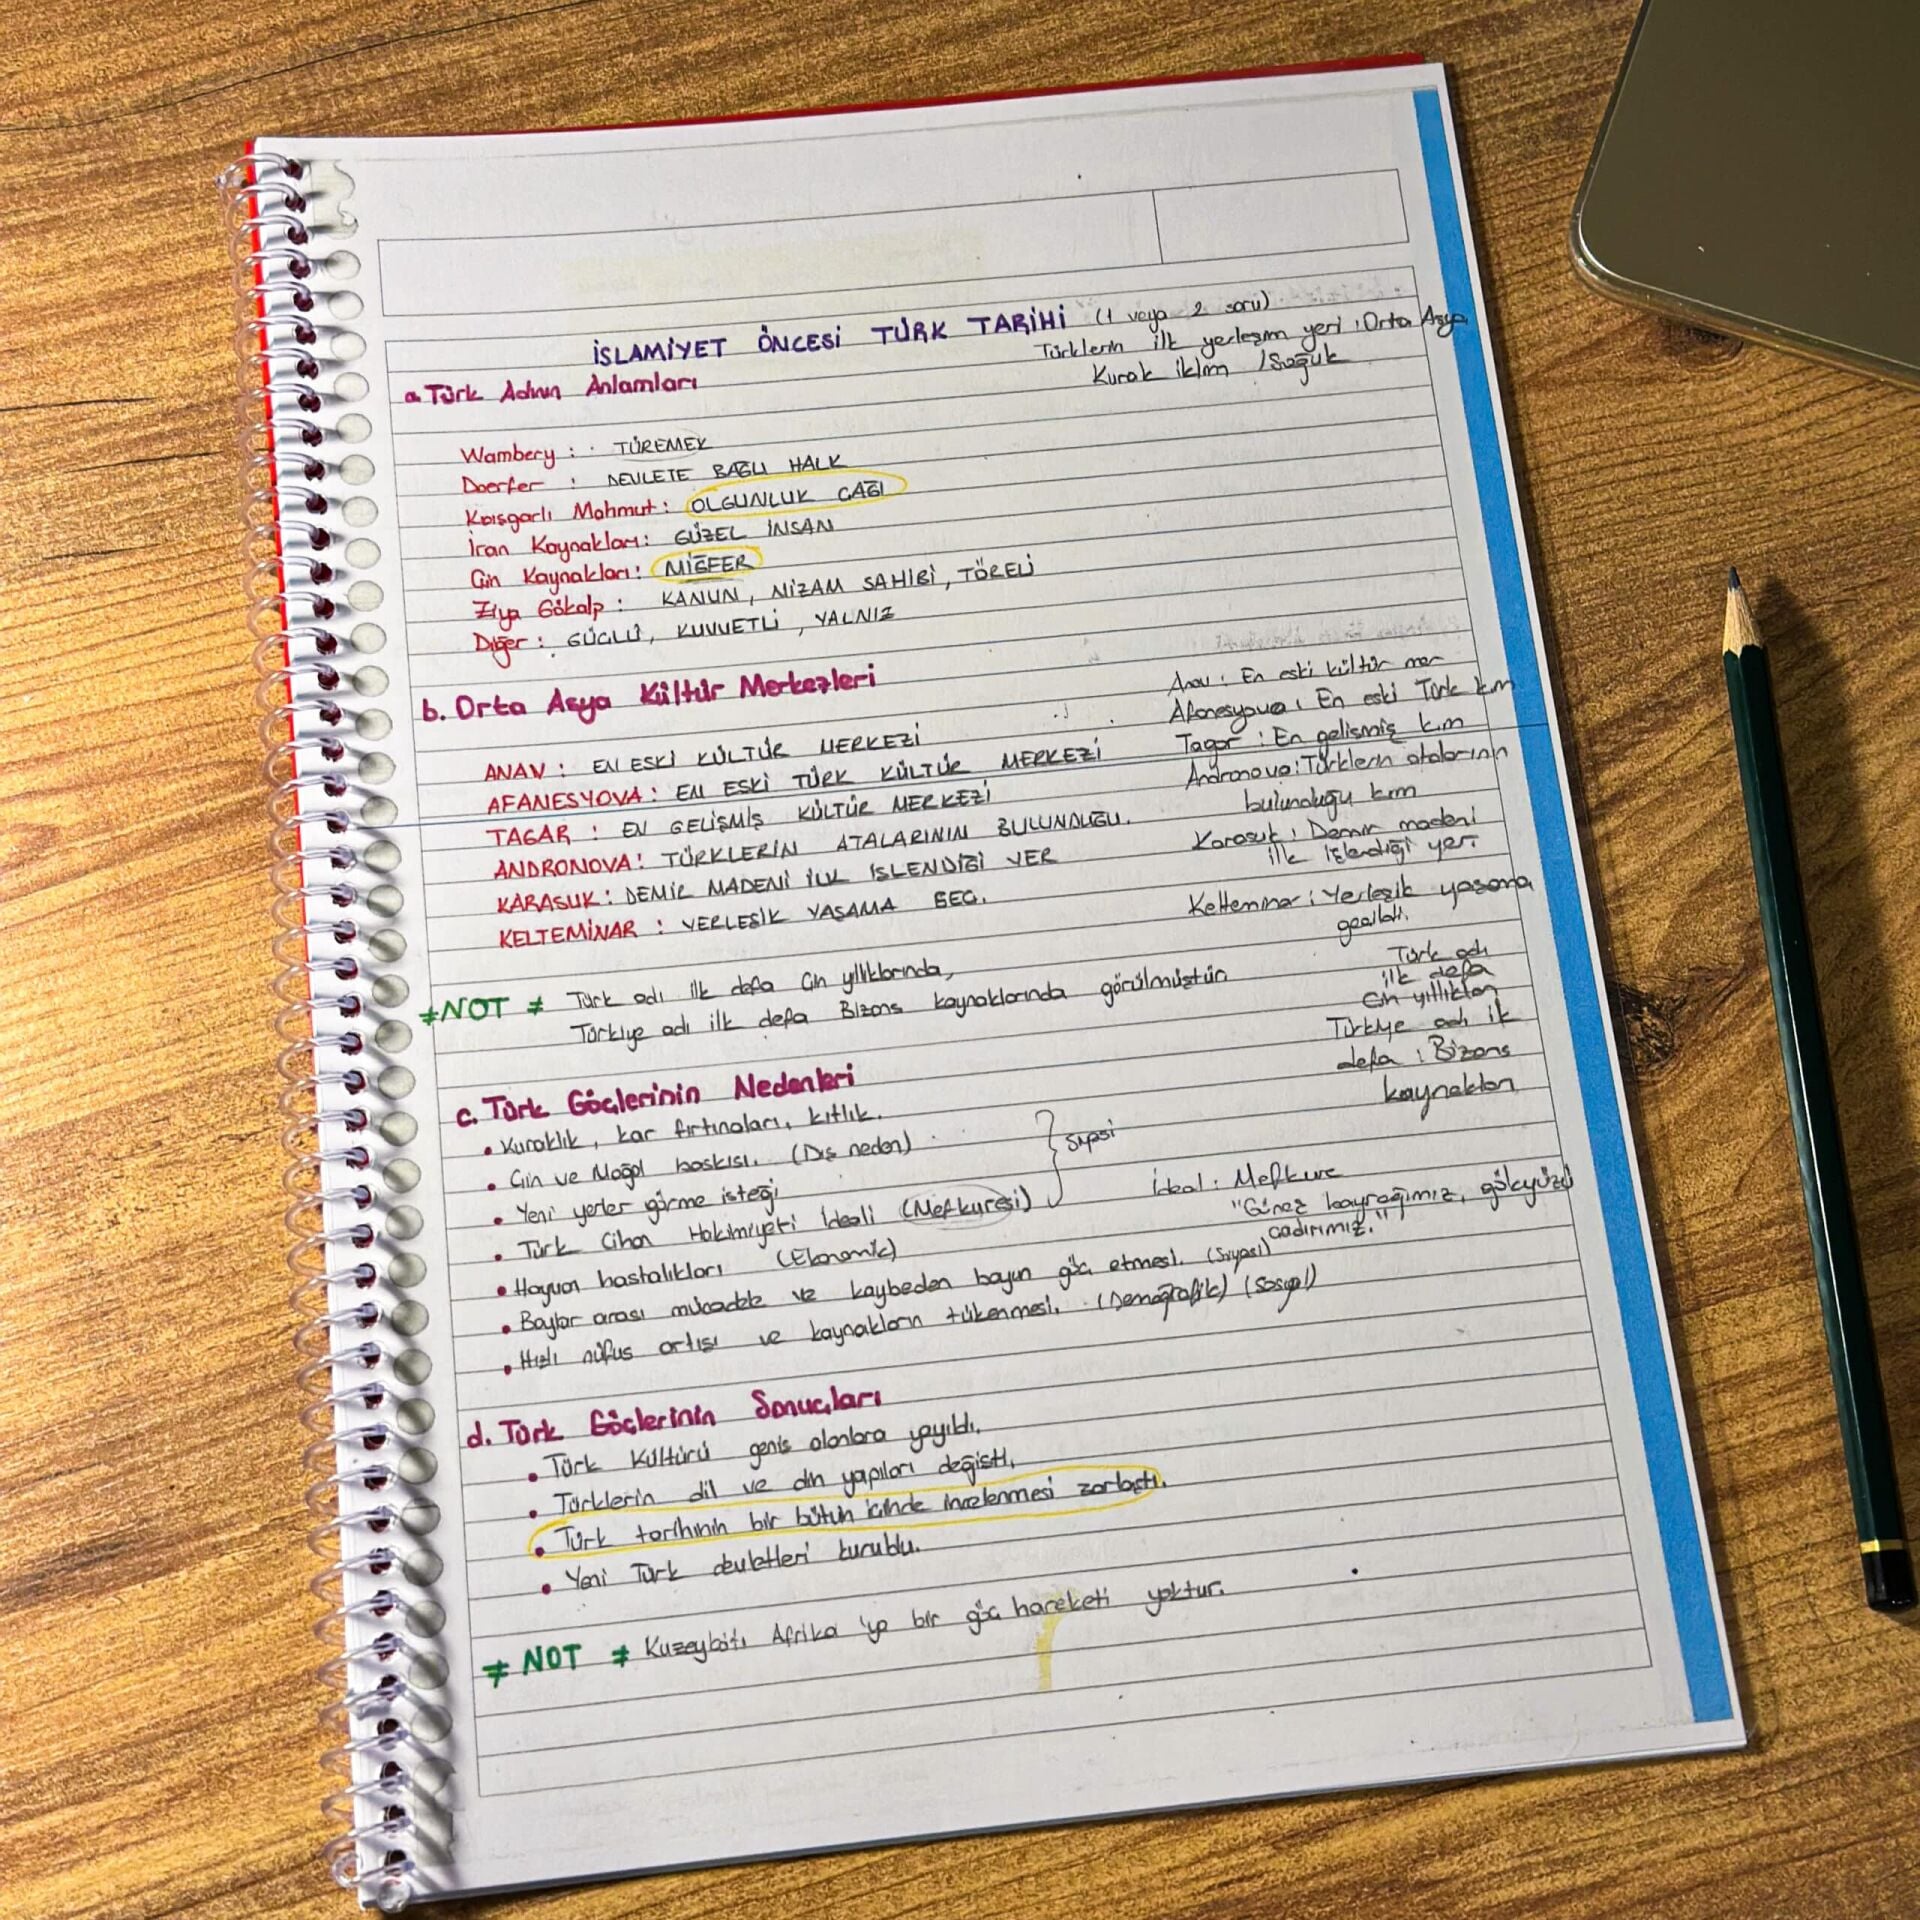 İSLAMİYET ÖNCESİ TÜRK TARİHİ (1 veya 2 soru)
Türklerin ilk yerleşim yeri : Orta Asya
Kurak iklim / Soğuk
a. Türk Adının Anlamları
Wambery : TÜREMEK
Doerfer : DEVLETE BAĞLI HALK
Kaşgarlı Mahmut : OLGUNLUK ÇAĞI
İran Kaynakları : GÜZEL İNSAN
Çin Kaynakları : MİĞFER
Ziya Gökalp : KANUN, NİZAM SAHİBİ, TÖRELİ
Diğer : GÜÇLÜ, KUVVETLİ, YALNIZ
b. Orta Asya Kültür Merkezleri
ANAV : EN ESKİ KÜLTÜR MERKEZİ
AFANESYOVA : EN ESKİ TÜRK KÜLTÜR MERKEZİ
TAGAR : EN GELİŞMİŞ KÜLTÜR MERKEZİ
ANDRONOVA : TÜRKLERİN ATALARININ BULUNDUĞU.
KARASUK : DEMİR MADENİ İLK İŞLENDİĞİ YER
KELTEMİNAR : YERLEŞİK YAŞAMA GEÇ.
Anav : En eski kültür mer
Afanesyova : En eski Türk k.m
Tagar : En gelişmiş k.m
Andronova : Türklerin atalarının
bulunduğu k.m
Karasuk : Demir madeni
ilk işlendiği yer.
Kelteminar : Yerleşik yaşama
geçildi.
≠ NOT ≠ Türk adı ilk defa Çin yıllıklarında,
Türkiye adı ilk defa Bizans kaynaklarında görülmüştür.
Türk adı
ilk defa
Çin yıllıkları
Türkiye adı ilk
defa : Bizans
kaynakları
c. Türk Göçlerinin Nedenleri
• Kuraklık, kar fırtınaları, kıtlık.
• Çin ve Moğol baskısı. (Dış neden)
• Yeni yerler görme isteği
• Türk Cihan Hakimiyeti İdeali (Mefkuresi)
• Hayvan hastalıkları (Ekonomik)
• Boylar arası mücadele ve kaybeden boyun göç etmesi. (Siyasi)
• Hızlı nüfus artışı ve kaynakların tükenmesi. (Demografik) (Sosyal)
İdeal : Mefkure
"Güneş bayrağımız, gökyüzü
çadırımız."
d. Türk Göçlerinin Sonuçları
• Türk Kültürü geniş alanlara yayıldı.
• Türklerin dil ve din yapıları değişti.
• Türk tarihinin bir bütün içinde incelenmesi zorlaştı.
• Yeni Türk devletleri kuruldu.
≠ NOT ≠ Kuzeybatı Afrika'ya bir göç hareketi yoktur.